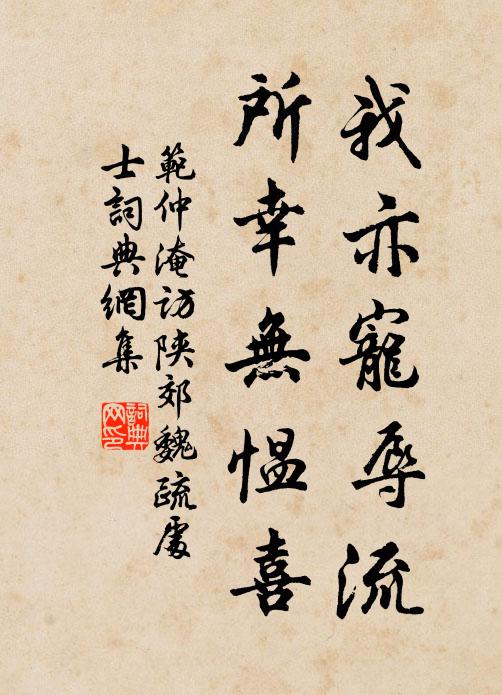 我亦寵辱流
所幸無愠喜
範仲淹訪陝郊魏疏處
士詞典網集
詞典
网印